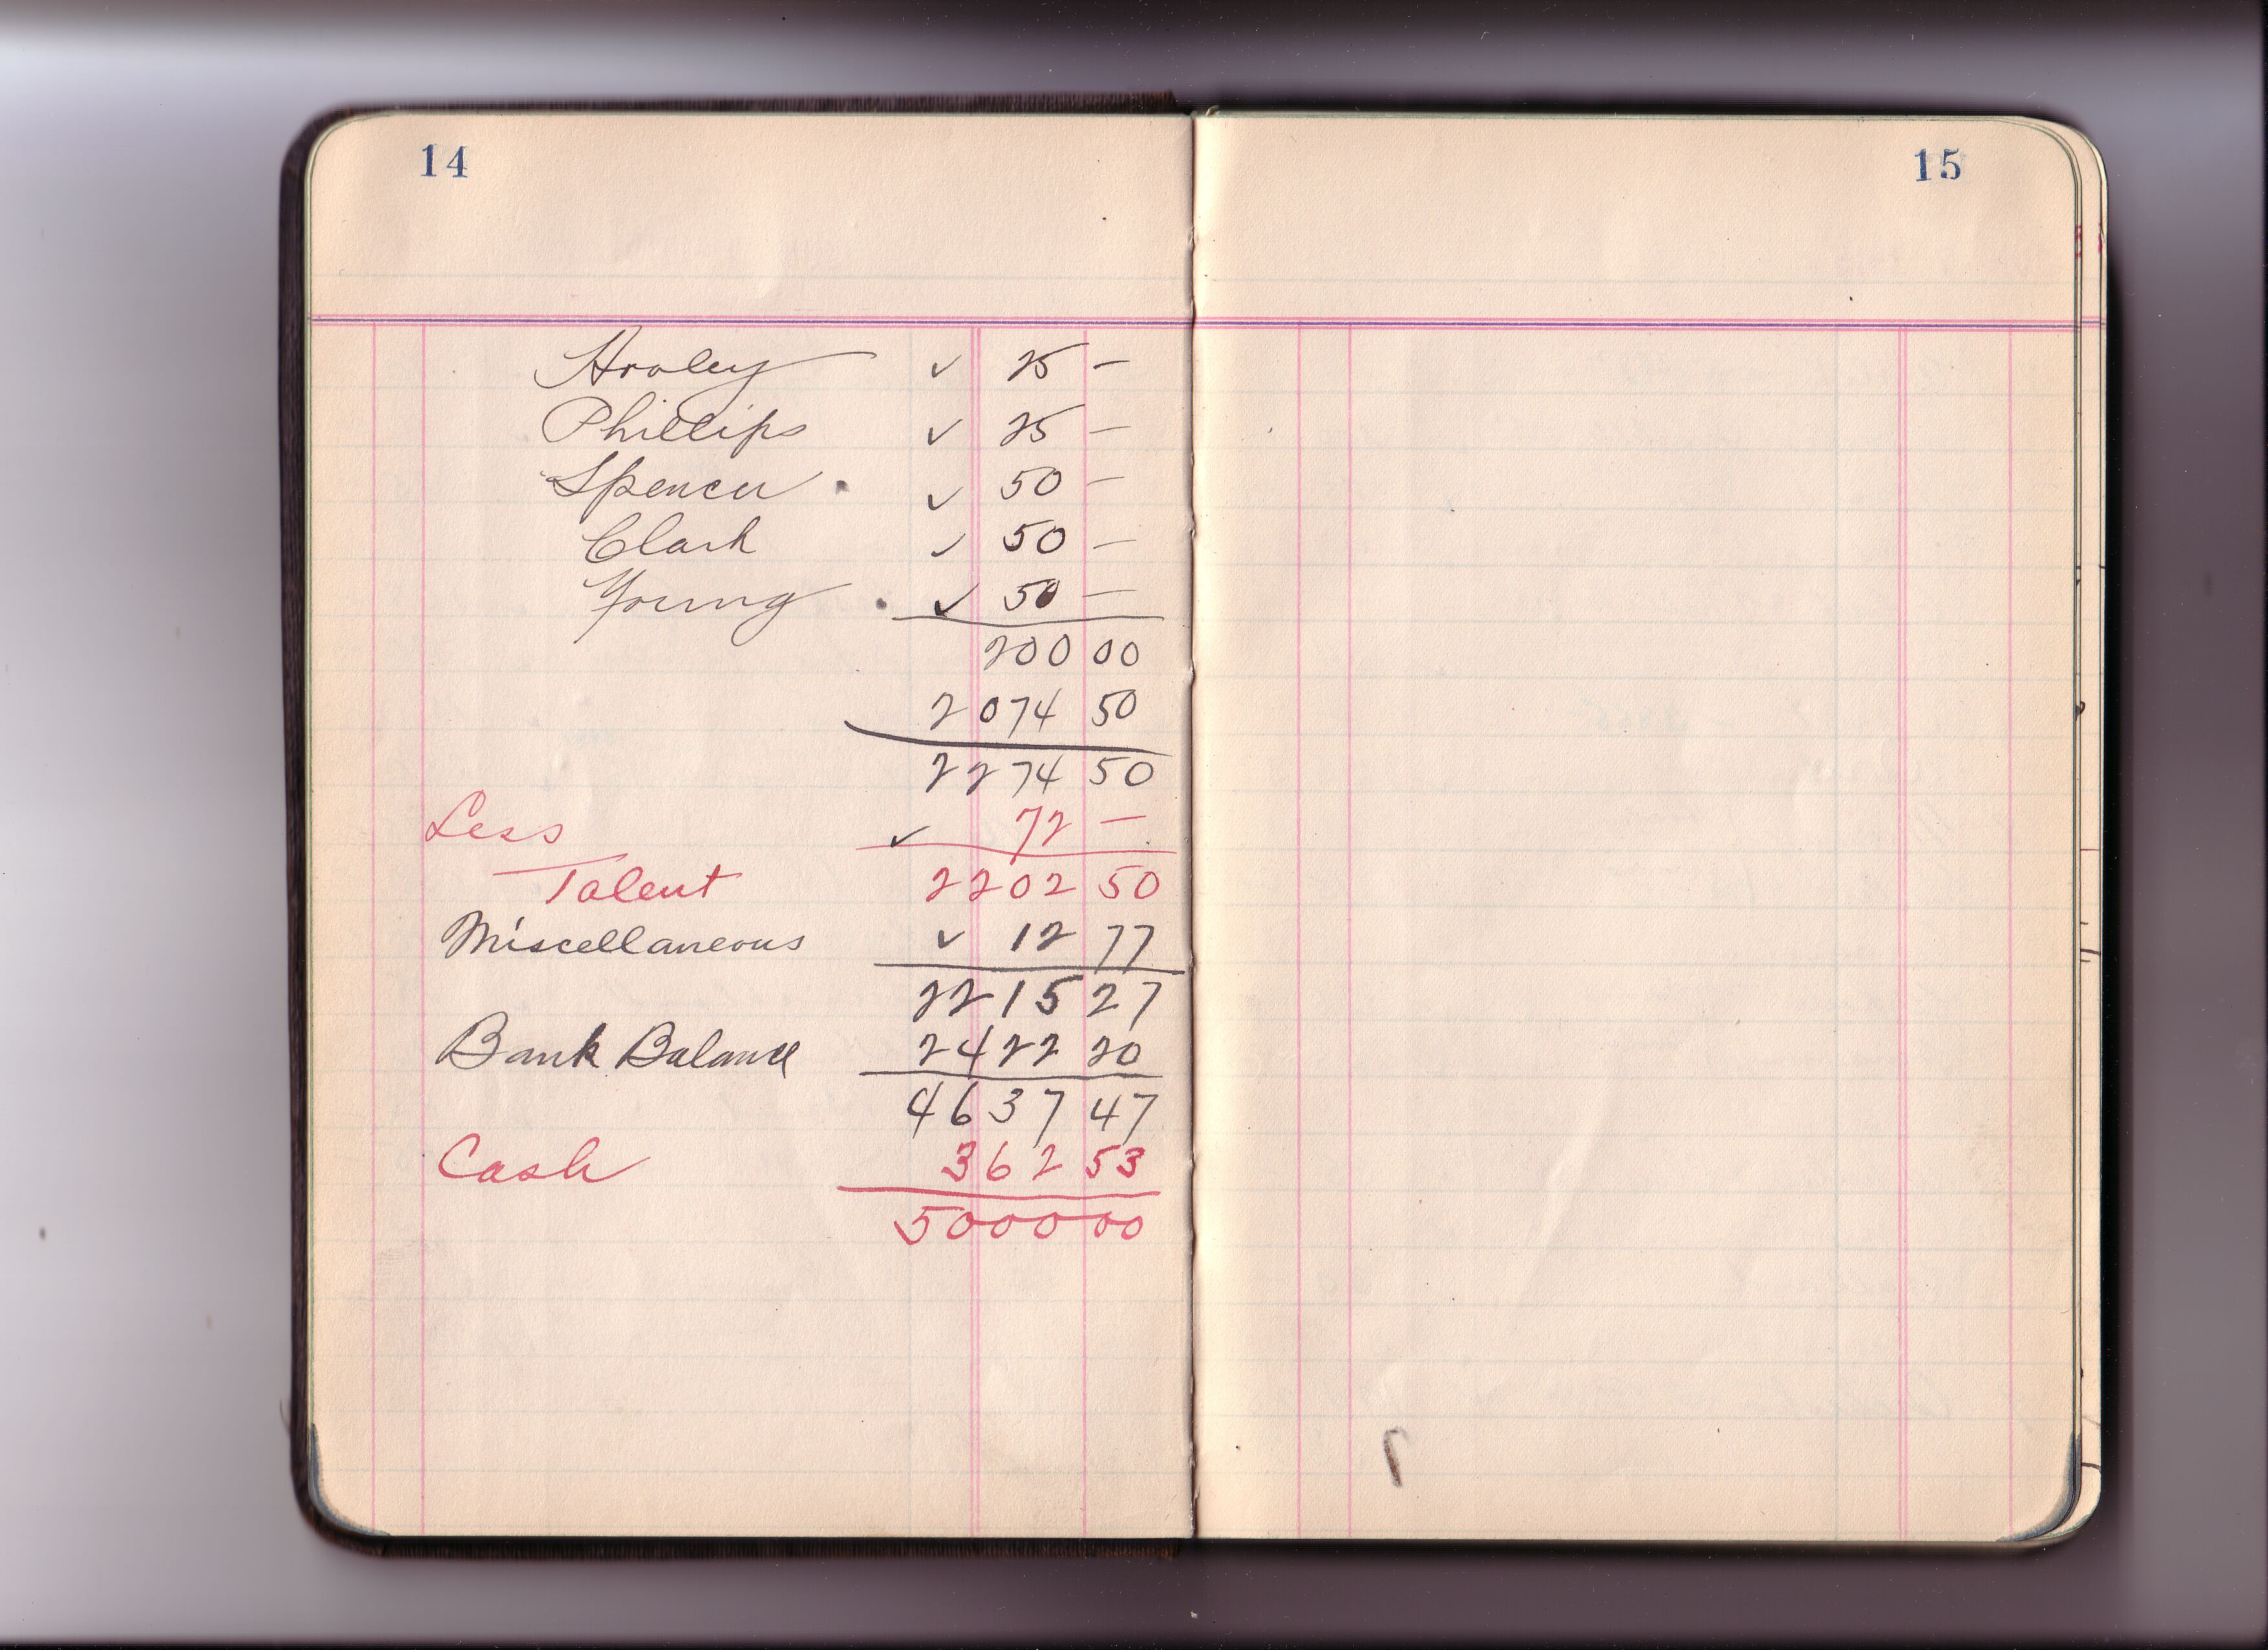 14
Hooley ✓ 25 —
Phillips ✓ 25 —
Spencer . ✓ 50 —
Clark ✓ 50 —
Young . ✓ 50 —
200 00
2074 50
2274 50
Less ✓ 72 —
Talent 2202 50
Miscellaneous ✓ 12 77
2215 27
Bank Balance 2422 20
4637 47
Cash 362 53
5000 00
15